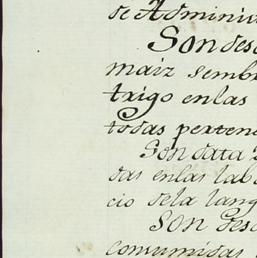 de Adminis
Son desc
maiz sembr
trigo enlas
todas perten
Son data 2
das enlas lab
cio dela lang
Son desc
consumidas